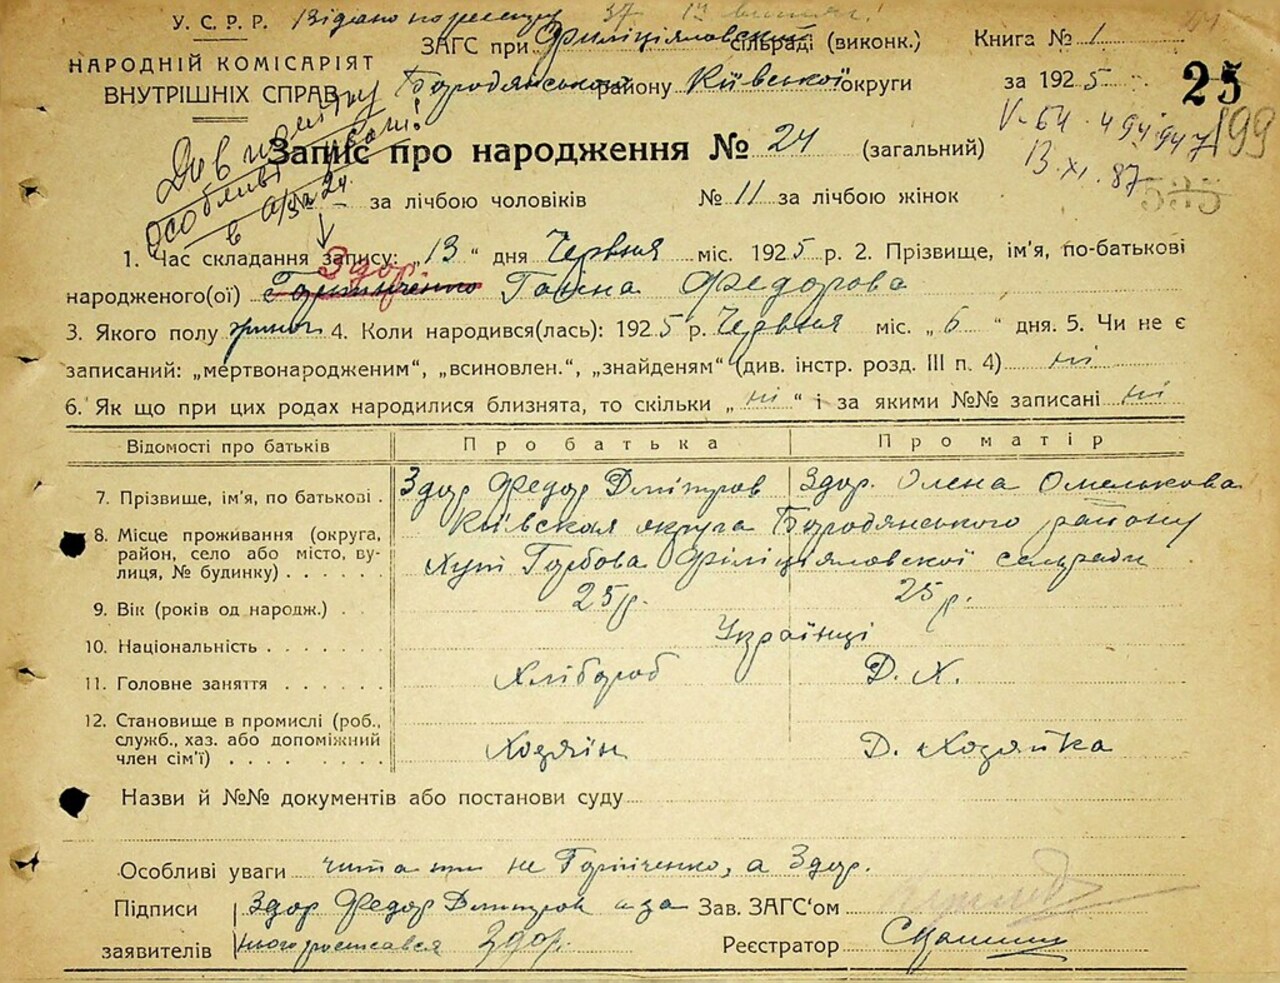 У. С. Р. Р. Видано по реєстру 37 13
НАРОДНІЙ КОМІСАРІЯТ
ВНУТРІШНІХ СПРАВ
ЗАГС при Филіціяловскій сільраді (виконк.) Книга № 1
Бородянського району Київської округи за 1925 25
Див помітку
особливі уваги!
в а/з № 24.
V-БЧ 494947 199
13.XI.87
535
Запис про народження № 24 (загальний)
№ – за лічбою чоловіків № 11 за лічбою жінок
1. Час складання запису: „13“ дня Червня міс. 1925 р. 2. Прізвище, ім'я, по-батькові
Здор.
народженого(ої) Горпинченко Ганна Федорова
3. Якого полу жіноч 4. Коли народився(лась): 1925 р. Червня міс. „6“ дня. 5. Чи не є
записаний: „мертвонародженим“, „всиновлен.“, „знайденям“ (див. інстр. розд. III п. 4) ні
6. Як що при цих родах народилися близнята, то скільки „ні“ і за якими №№ записані ні
Відомості про батьків Про батька Про матір
7. Прізвище, ім'я, по батькові . Здор Федор Дмітров Здор. Олена Омелькова
8. Місце проживання (округа, район, село або місто, вулиця, № будинку) . . . . . Київская округа Бородянського району
Хут Горбова Філіціяловскої сельради
9. Вік (років од народж.) . . 25 р. 25 р.
10. Національність . . . . . . . Українці
11. Головне заняття . . . . . . Хлібороб Д. Х.
12. Становище в промислі (роб., служб., хаз. або допоміжний член сім'ї) . . . . . . . . Хозяїн Д. Хозяйка
Назви й №№ документів або постанови суду
Особливі уваги читати не Горпіченко, а Здор.
Підписи Здор Федор Дмитров а за Зав. ЗАГС'ом
заявителів нього росписався Здор. Реєстратор